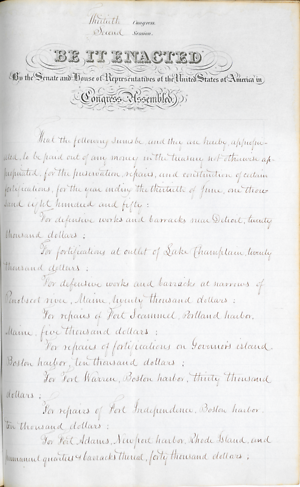 Thirtieth Congress.
Second Session.
BE IT ENACTED
By the Senate and House of Representatives of the United States of America in
Congress Assembled,
That the following sums be and they are hereby appropri-
ated, to be paid out of any money in the treasury not otherwise ap-
propriated, for the preservation, repairs, and construction of certain
fortifications, for the year ending the thirtieth of June, one thou-
sand eight hundred and fifty:
For defensive works and barracks near Detroit, twenty
thousand dollars;
For fortifications at outlet of Lake Champlain, twenty
thousand dollars;
For defensive works and barracks at narrows of
Penobscot river, Maine, twenty thousand dollars;
For repairs of Fort Scammel, Portland harbor,
Maine, five thousand dollars;
For repairs of fortifications on Governor's island,
Boston harbor, ten thousand dollars;
For Fort Warren, Boston harbor, thirty thousand
dollars;
For repairs of Fort Independence, Boston harbor,
Ten thousand dollars;
For Fort Adams, Newport harbor, Rhode Island, and
permanent quarters & barracks thereat, forty thousand dollars;